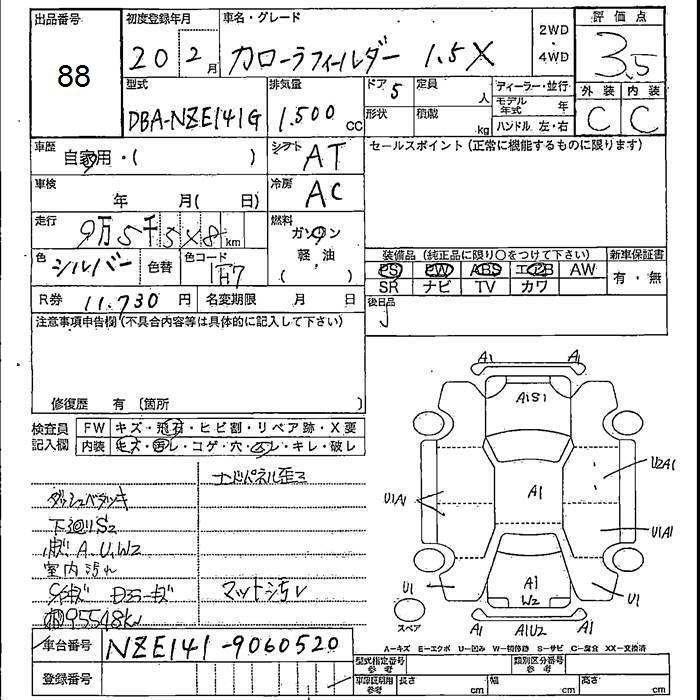 出品番号
88
初度登録年月
20 2月
車名・グレード
カローラフィールダー 1.5X
2WD
・
4WD
評価点
3.5
外装 内装
C C
型式
DBA-NZE141G
排気量
1.500 cc
ドア 5
形状
定員 人
積載 kg
ディーラー・並行
モデル年式 年
ハンドル 左・右
車歴
自家用・( )
シフト AT
車検
年 月( 日)
冷房 AC
走行
9万5千5×8 km
燃料
ガソリン
軽・油
( )
色 シルバー 色替
色コード 1H7
R券 11.730 円
名変期限 月 日
セールスポイント (正常に機能するものに限ります)
装備品 (純正品に限り○をつけて下さい)
新車保証書
PS PW ABS エアB AW
SR ナビ TV カワ
有・無
後日品
注意事項申告欄 (不具合内容等は具体的に記入して下さい)
修復歴 有 〔箇所
検査員記入欄
FW キズ・飛石・ヒビ割・リペア跡・X要
内装 キズ・汚レ・コゲ・穴・スレ・キレ・破レ
ダッシュベタツキ
下廻りS2
A.U.W2
室内汚れ
95548km
マット汚レ
車台番号 NZE141-9060520
登録番号
A1 A1
A1S1
U1A1
A1
U2A1
U1A1
U1
A1
W2
U1
スペア
A1 A1U2 A1
A-キズ E-エクボ U-凹み W-補修跡 S-サビ C-腐食 XX-交換済
型式指定番号 参考
類別区分番号 参考
車庫証明用 参考
長さ cm 幅 cm 高さ cm